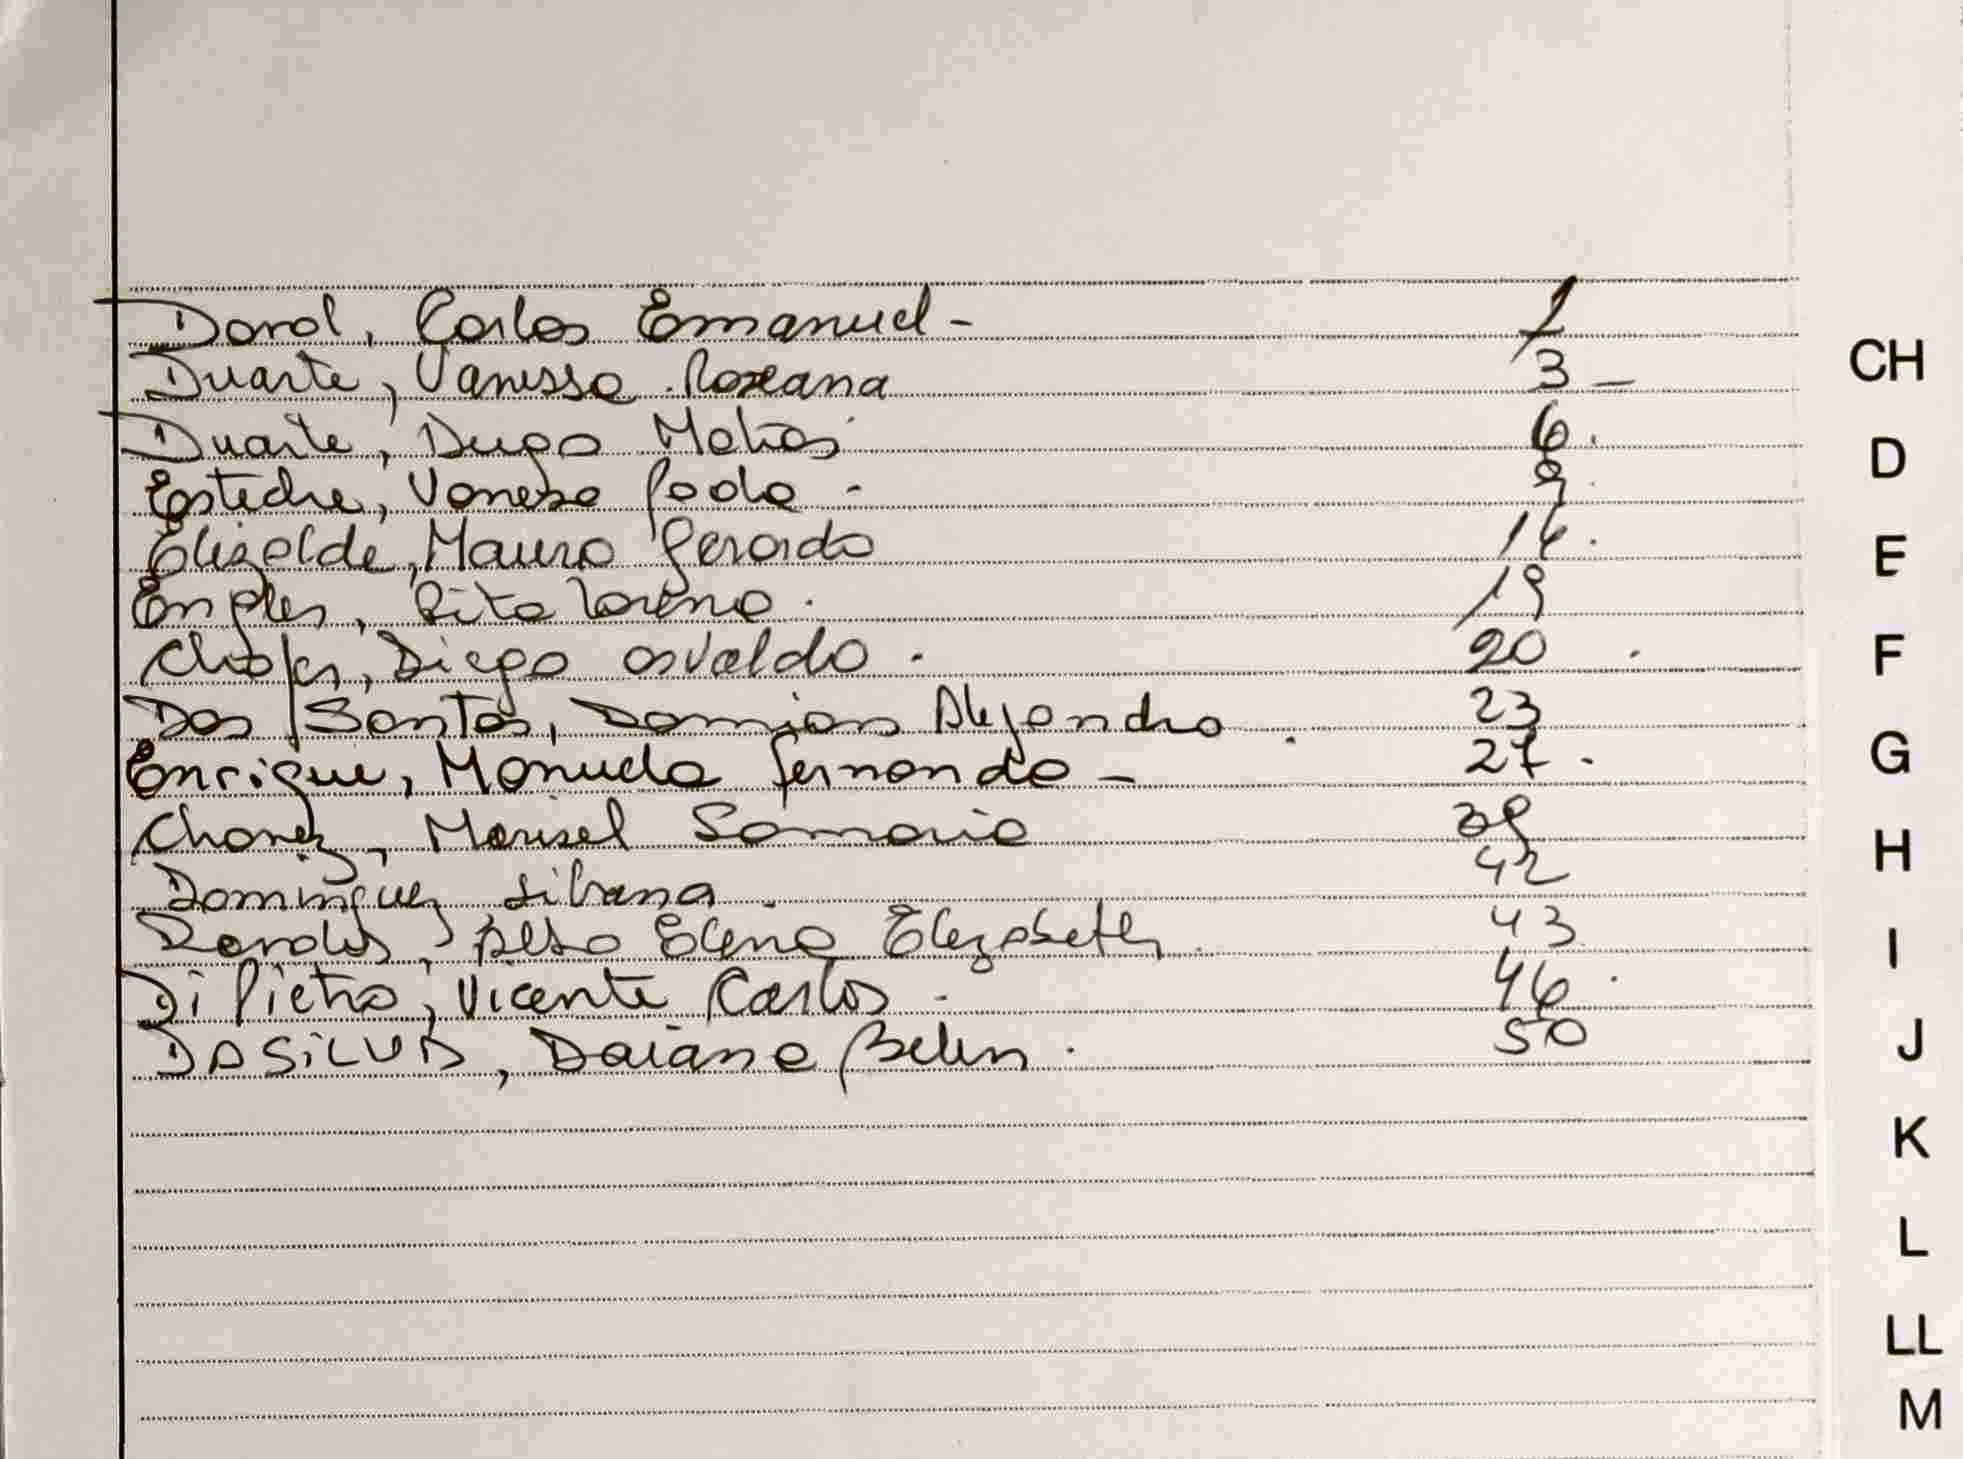 Daral, Carlos Emanuel - 1
Duarte, Vanessa Roxana 3 -
CH
Duarte, Dugo Matias 6.
D
Vanesa Paola - 9.
Elizalde, Mauro Gerardo 14.
E
Engler, Rita Lorena. 19
Diego Osvaldo. 20 .
F
Dos Santos, Damian Alejandro. 23
Enrique, Manuela Fernanda - 27.
G
Chavez, Marisel Samaria 39
H
Dominguez, Silvana 42
Elena Elizabeth. 43
I
Di Pietro, Vicente Carlos. 46.
DASILVA, Daiana Belen. 50
J
K
L
LL
M